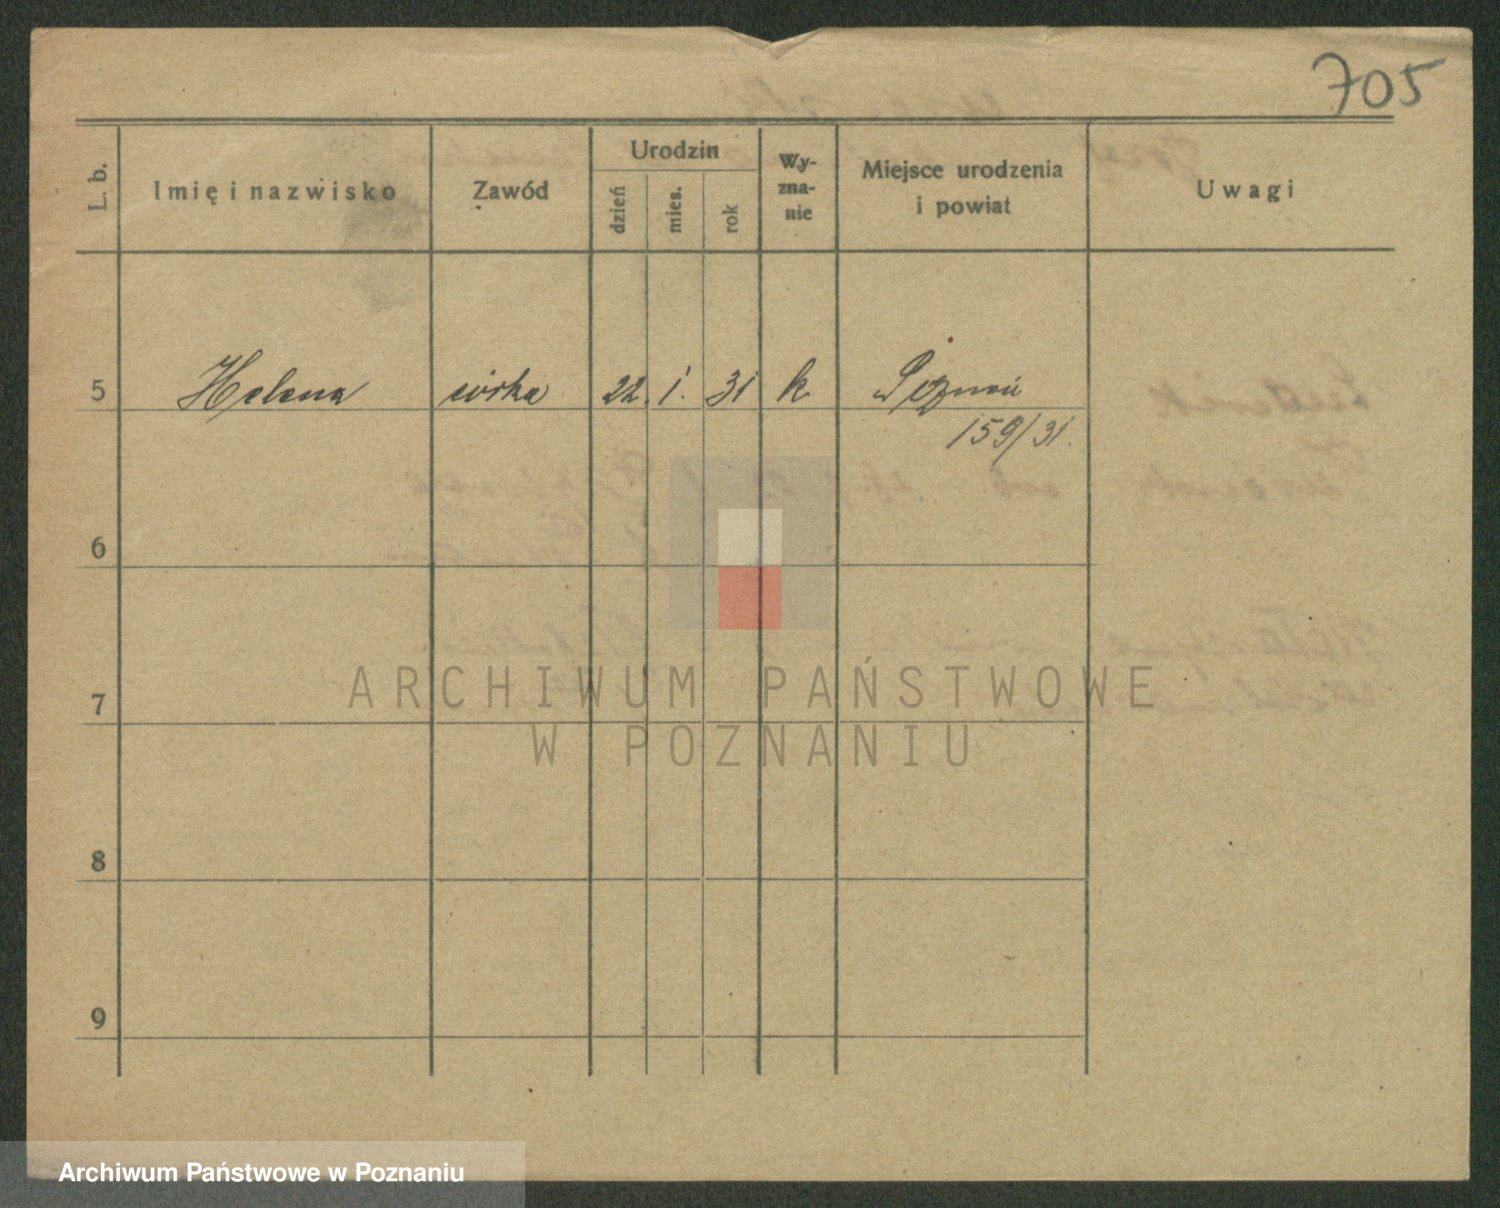 705
L. b.
Imię i nazwisko
Zawód
Urodzin
dzień
mies.
rok
Wy-
zna-
nie
Miejsce urodzenia
i powiat
Uwagi
5 Helena córka 22. 1. 31 k. Poznań
159/31.
6
7
8
9
ARCHIWUM PAŃSTWOWE
W POZNANIU
Archiwum Państwowe w Poznaniu